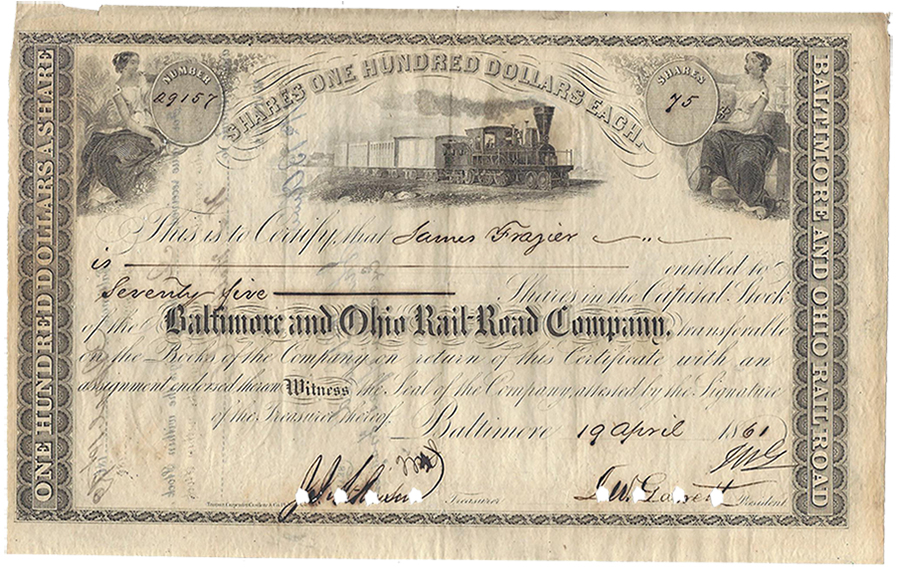 NUMBER
29157
SHARES ONE HUNDRED DOLLARS EACH.
SHARES
75
ONE HUNDRED DOLLARS A SHARE
BALTIMORE AND OHIO RAIL-ROAD
This is to Certify, that James Frazier
is entitled to
Seventy five Shares in the Capital Stock
of the Baltimore and Ohio Rail-Road Company, transferable
on the Books of the Company, on return of this Certificate with an
assignment endorsed thereon Witness the Seal of the Company, attested by the Signature
of the Treasurer thereof.
Baltimore 19 April 1861
Treasurer
J.W. Garrett President